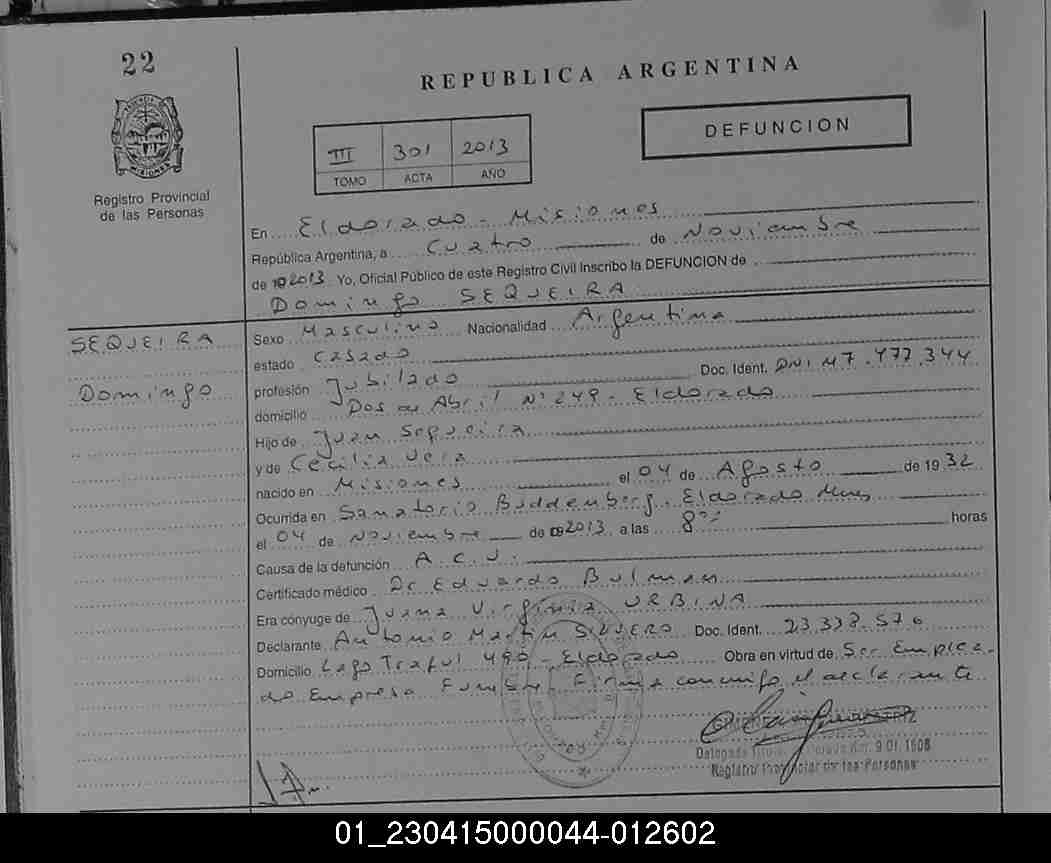 22
REPUBLICA ARGENTINA
DEFUNCION
III 301 2013
TOMO ACTA AÑO
Registro Provincial
de las Personas
En Eldorado - Misiones
República Argentina, a Cuatro de Noviembre
de 2013 Yo, Oficial Público de este Registro Civil Inscribo la DEFUNCION de
Domingo SEQUEIRA
SEQUEIRA
Domingo
Sexo Masculino Nacionalidad Argentina
estado Casado
profesión Jubilado Doc. Ident. DNI M7.477.344
domicilio Dos de Abril N° 249 - Eldorado
Hijo de Juan Sequeira
y de Cecilia Vera
nacido en Misiones el 04 de Agosto de 1932
Ocurrida en Sanatorio Buddenberg. Eldorado Mnes
el 04 de Noviembre de 2013 a las 8°° horas
Causa de la defunción A.C.V.
Certificado médico Dr Eduardo Bulman
Era cónyuge de Juana Virginia URBINA
Declarante Antonio Martin SILVERO Doc. Ident. 23.338.576
Domicilio Lago Traful 490 - Eldorado Obra en virtud de Ser Emplea-
do Empresa Funebre. Firma conmigo el declarante
Delegada Km. 9 Of. 1608
Registro Provincial de las Personas
01_230415000044-012602